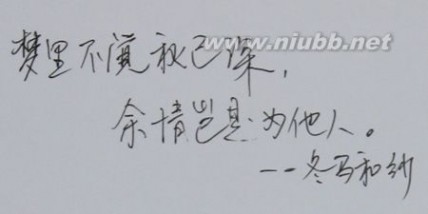 www.niubb.net
梦里不觉秋已深，
余情岂是为他人。
--冬马和纱